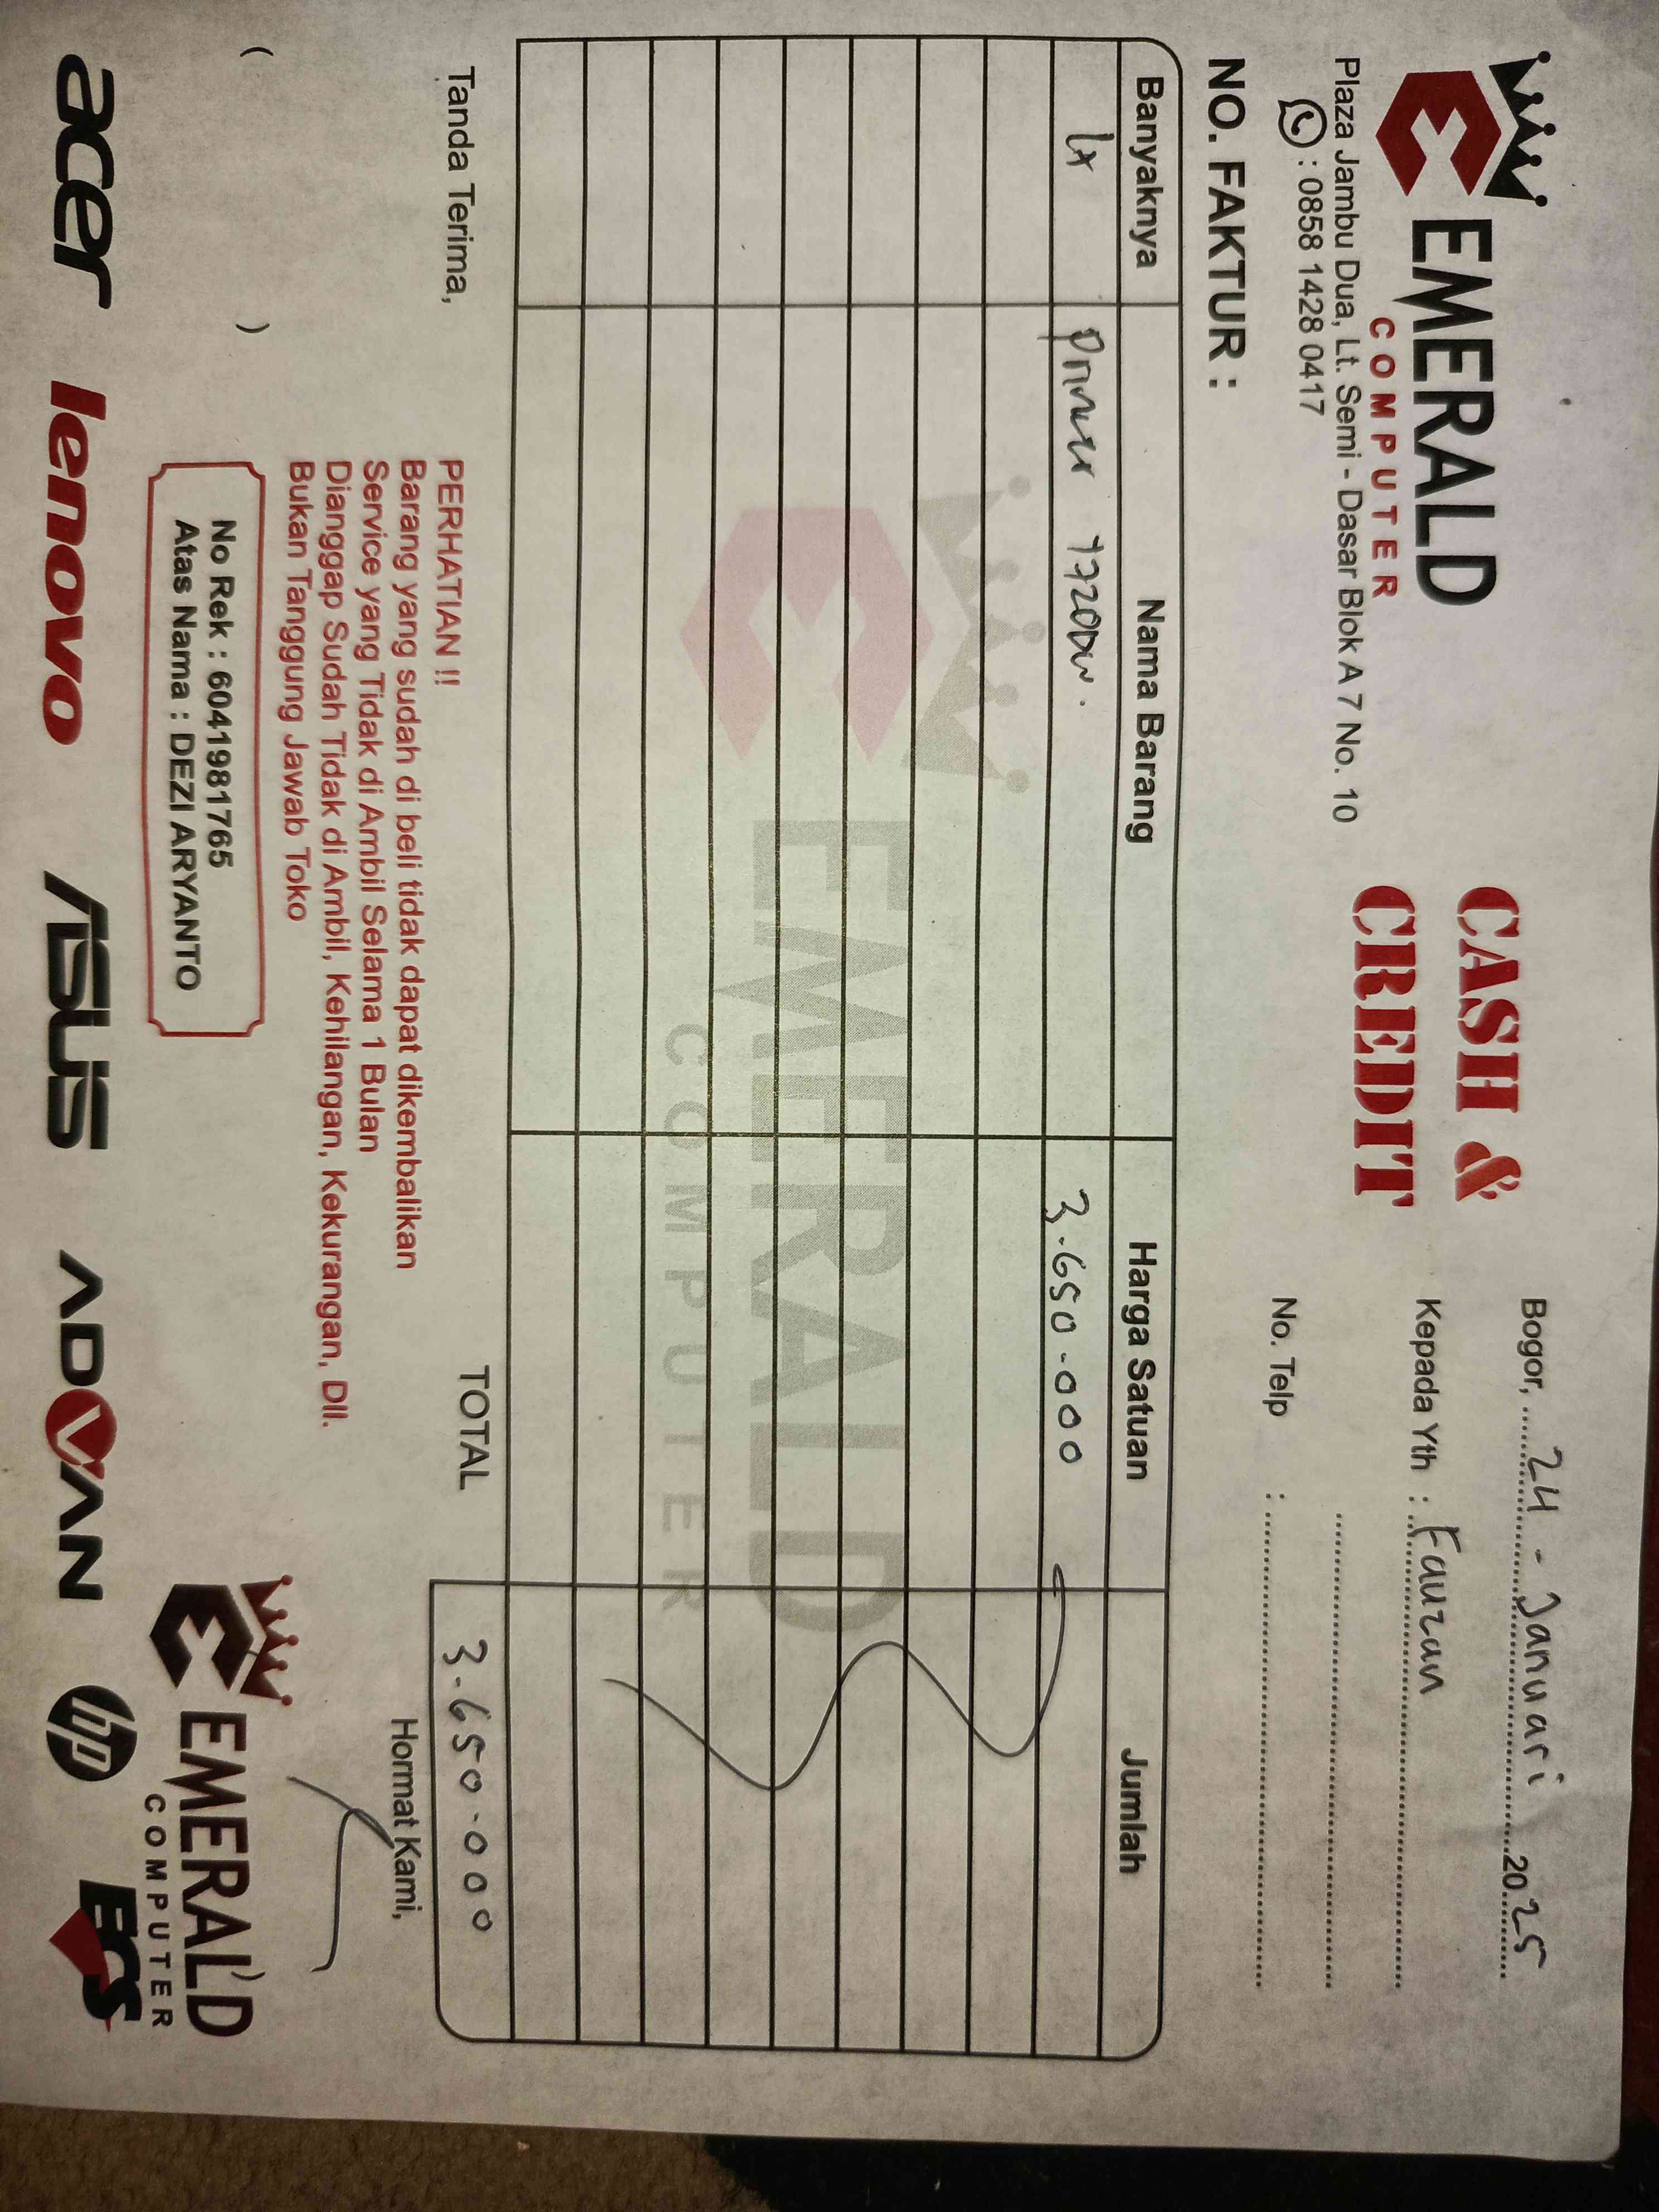 EMERALD
COMPUTER
Plaza Jambu Dua, Lt. Semi - Dasar Blok A 7 No. 10
: 0858 1428 0417
CASH &
CREDIT
Bogor, 24 - Januari 2025
Kepada Yth : Fauzan
No. Telp :
NO. FAKTUR :
Banyaknya Nama Barang Harga Satuan Jumlah
1x Printer T720DW. 3.650.000
EMERALD
COMPUTER
TOTAL 3.650.000
Tanda Terima,
( )
PERHATIAN !!
Barang yang sudah di beli tidak dapat dikembalikan
Service yang Tidak di Ambil Selama 1 Bulan
Dianggap Sudah Tidak di Ambil, Kehilangan, Kekurangan, Dll.
Bukan Tanggung Jawab Toko
No Rek : 6041981765
Atas Nama : DEZI ARYANTO
Hormat Kami,
EMERALD
COMPUTER
acer lenovo ASUS ADVAN hp ECS